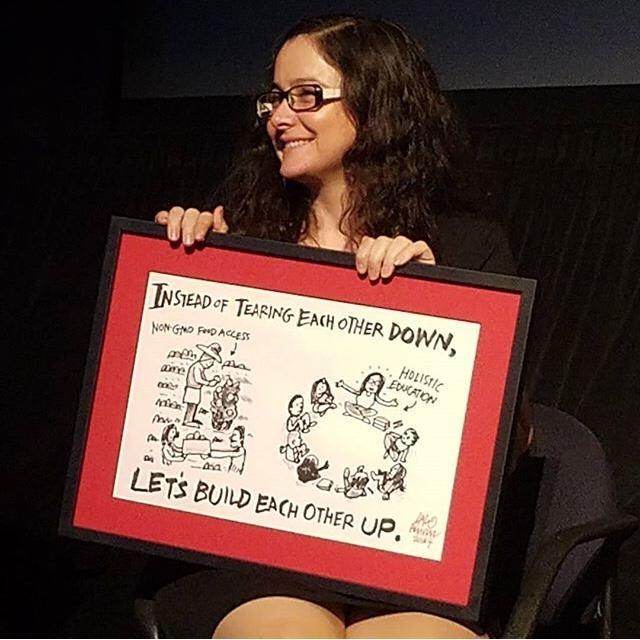 INSTEAD OF TEARING EACH OTHER DOWN,
NON-GMO FOOD ACCESS
HOLISTIC
EDUCATION
LET'S BUILD EACH OTHER UP.